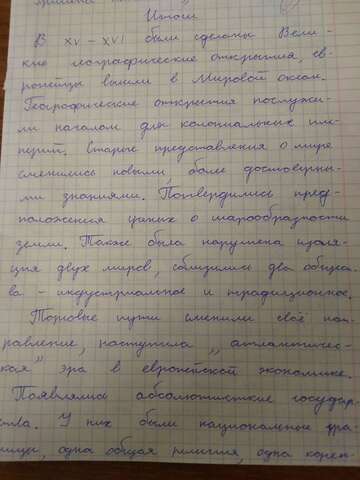 Итоги
В XV – XVI были сделаны Вели-
кие географические открытия, ев-
ропейцы вышли в Мировой океан.
Географические открытия послужи-
ли началом для колониальных им-
перий. Старые представления о мире
сменились новыми, более достоверны-
ми знаниями. Потвердились пред-
положения ученых о шарообразности
земли. Также была нарушена изоля-
ция двух миров, сблизились два общес-
ва – индустриальное и традиционное.
Торговые пути сменили своё нап-
равление, наступила „атлантичес-
кая" эра в европейской экономике.
Появлялись абсолютисткие государ-
ства. У них были национальные гра-
ницы, одна общая религия, одна корен-